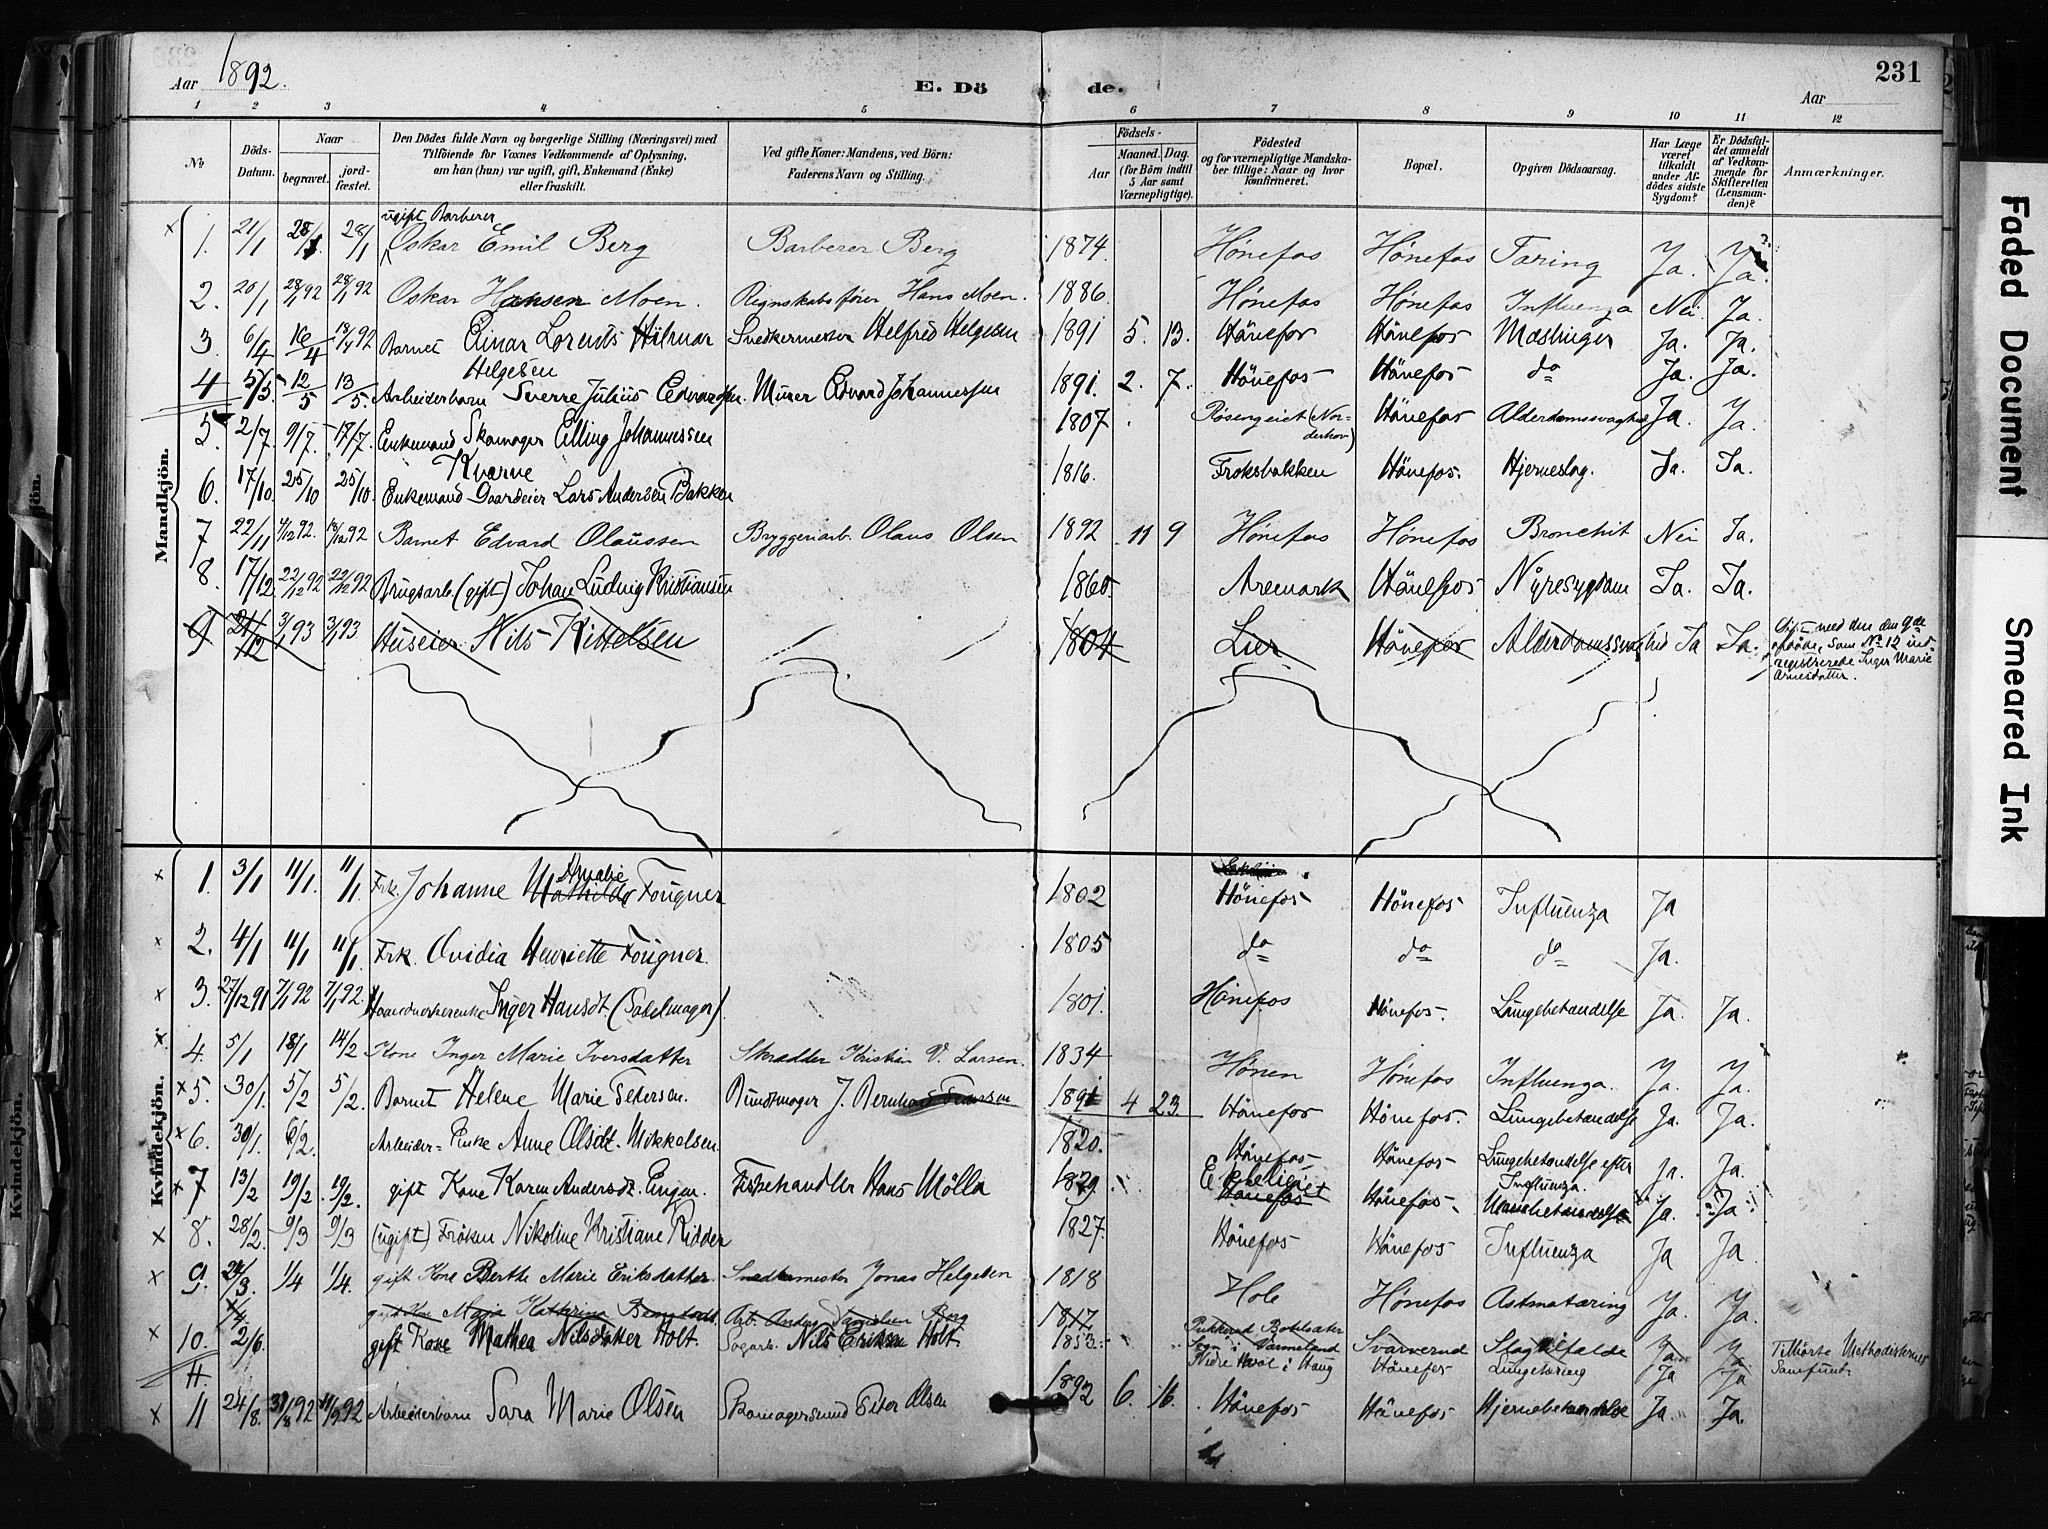 Aar 1892.
E. Dö de.
Aar
231
1 2 3 4 5 6 7 8 9 10 11 12
No
Döds-Datum.
Naar
begravet.
jord-fæstet.
Den Dödes fulde Navn og borgerlige Stilling (Næringsvei) med
Tilföiende for Voxnes Vedkommende af Oplysning,
om han (hun) var ugift, gift, Enkemand (Enke)
eller fraskilt.
Ved gifte Koner: Mandens, ved Börn:
Faderens Navn og Stilling.
Födsels-
Aar
Maaned. Dag.
(for Börn indtil
5 Aar samt
Værnepligtige).
Födested
og for værnepligtige Mandska-
ber tillige: Naar og hvor
konfirmeret.
Bopæl.
Opgiven Dödsaarsag.
Har Læge
været
tilkaldt
under Af-
dödes sidste
Sygdom?
Er Dödsfal-
det anmeldt
af Vedkom-
mende for
Skifteretten
(Lensman-
den)?
Anmærkninger.
Mandkjön.
ugift Barberer
1. 21/1 28/1 28/1 Oskar Emil Berg Barberer Berg 1874. Hönefos Hönefos Tæring Ja. Ja.
2. 20/1 28/1 92 28/1 92 Oskar Hansen Moen. Regnskabsfører Hans Moen. 1886. Hönefos Hönefos Influenza Nei Ja.
3. 6/4 16/4 18/4 92 Barnet Einar Lorents Hilmar Snedkermester Helfred Helgesen 1891 5. 13. Hönefos Hönefos Mæslinger Ja. Ja.
Helgesen
4 5/5. 12/5 13/5. Arbeiderbarn Sverre Julius Edvardsen. Murer Edvard Johannessen 1891. 2. 7. Hönefos Hönefos do Ja. Ja.
5. 2/7. 9/7. 17/7. Enkemand Skomager Elling Johannessen 1807 Rösengeiet (Nor-
derhov) Hönefos Alderdomssvaghed Ja. Ja.
Kværne
6. 17/10 25/10 25/10. Enkemand Gaardeier Lars Andersen Bakken 1816. Froksbakken Hönefos. Hjerneslag. Ja. Ja.
7 22/11 4/12 92. 18/12 92 Barnet Edvard Olaussen Bryggeriarb. Olaus Olsen 1892 11 9 Hönefos Hönefos Bronchit Nei Ja.
8. 17/12. 22/12 92 22/12 92 Brugsarb. (gift) Johan Ludvig Kristiansen 1860. Aremark Hönefos Nyresygdom Ja. Ja.
9 21/12 3/1 93 3/1 93 Huseier Nils Kittelsen 1804 Lier Hönefos Alderdomssvaghed Ja Ja. Gift med den den 9de
opdøde, som No 12 ind-
registrerede Inger Marie
Arnesdatter.
Kvindekjön.
1. 3/1 11/1. 11/1 Frk. Johanne Mathilde Amalie Fougner 1802 Hönefos Hönefos Influenza Ja
2. 4/1 11/1 11/1. Frk. Ovidia Henriette Fougner. 1805 do do do Ja.
3. 27/12 91 7/1 92 7/1 92. Haandverkerenke Inger Hansdt (Sadelmager). 1801. Hönefos Hönefos. Lungebetændelse Ja. Ja.
4. 5/1 18/1 14/2 Kone Inger Marie Iversdatter Skrædder Kristian V. Larsen. 1834 Hönen Hönefos Influenza. Ja. Ja.
5. 30/1. 5/2 5/2. Barnet Helene Marie Pedersen. Buntmager J. Bernhard Pedersen 1891 4 23. Hönefos Hönefos. Lungebetændelse Ja. Ja.
6. 30/1. 6/2. Arbeider-Enke Anne Olsdt. Mikkelsen. 1820. Hönefos Hönefos Lungebetændelse efter
Influenza. Ja. Ja.
7 13/2 19/2. 19/2. gift Kone Karen Andersdt. Engen. Fiskehandler Hans Mölla 1829. Ekeleiiet
Hönefos Hönefos. Ja. Ja
8. 28/2. 9/3 9/3 (ugift) Fröken Nikoline Kristiane Ridder 1827. Hönefos Hönefos Influenza Ja Ja
9. 24/3. 1/4 1/4. gift Kone Berthe Marie Eriksdatter. Snedkermester Jonas Helgesen 1818 Hole Hönefos Astmatæring Ja. Ja.
1/4. gift Kone Maja Katherina Bengtsdt. Arb. Anders Danielsen Borg 1817 Sogn i Värmeland Svarverud Slagtilfælde Ja Ja
10. 2/6. gift Kone Mathea Nilsdatter Holt. Sogarb. Nils Eriksen Holt. 1853. Nedre Hval i Haug Hönefos Lungetæring Ja Ja Tilhörte Methodisternes
Samfund.
11.
11 24/8. 31/8 92 11/9 92 Arbeiderbarn Sara Marie Olsen Skomagersvend Peter Olsen 1892 6. 16. Hönefos Hönefos Hjernebetændelse Ja. Ja.
Faded Document
Smeared Ink
kjön.
Kvindekjön.